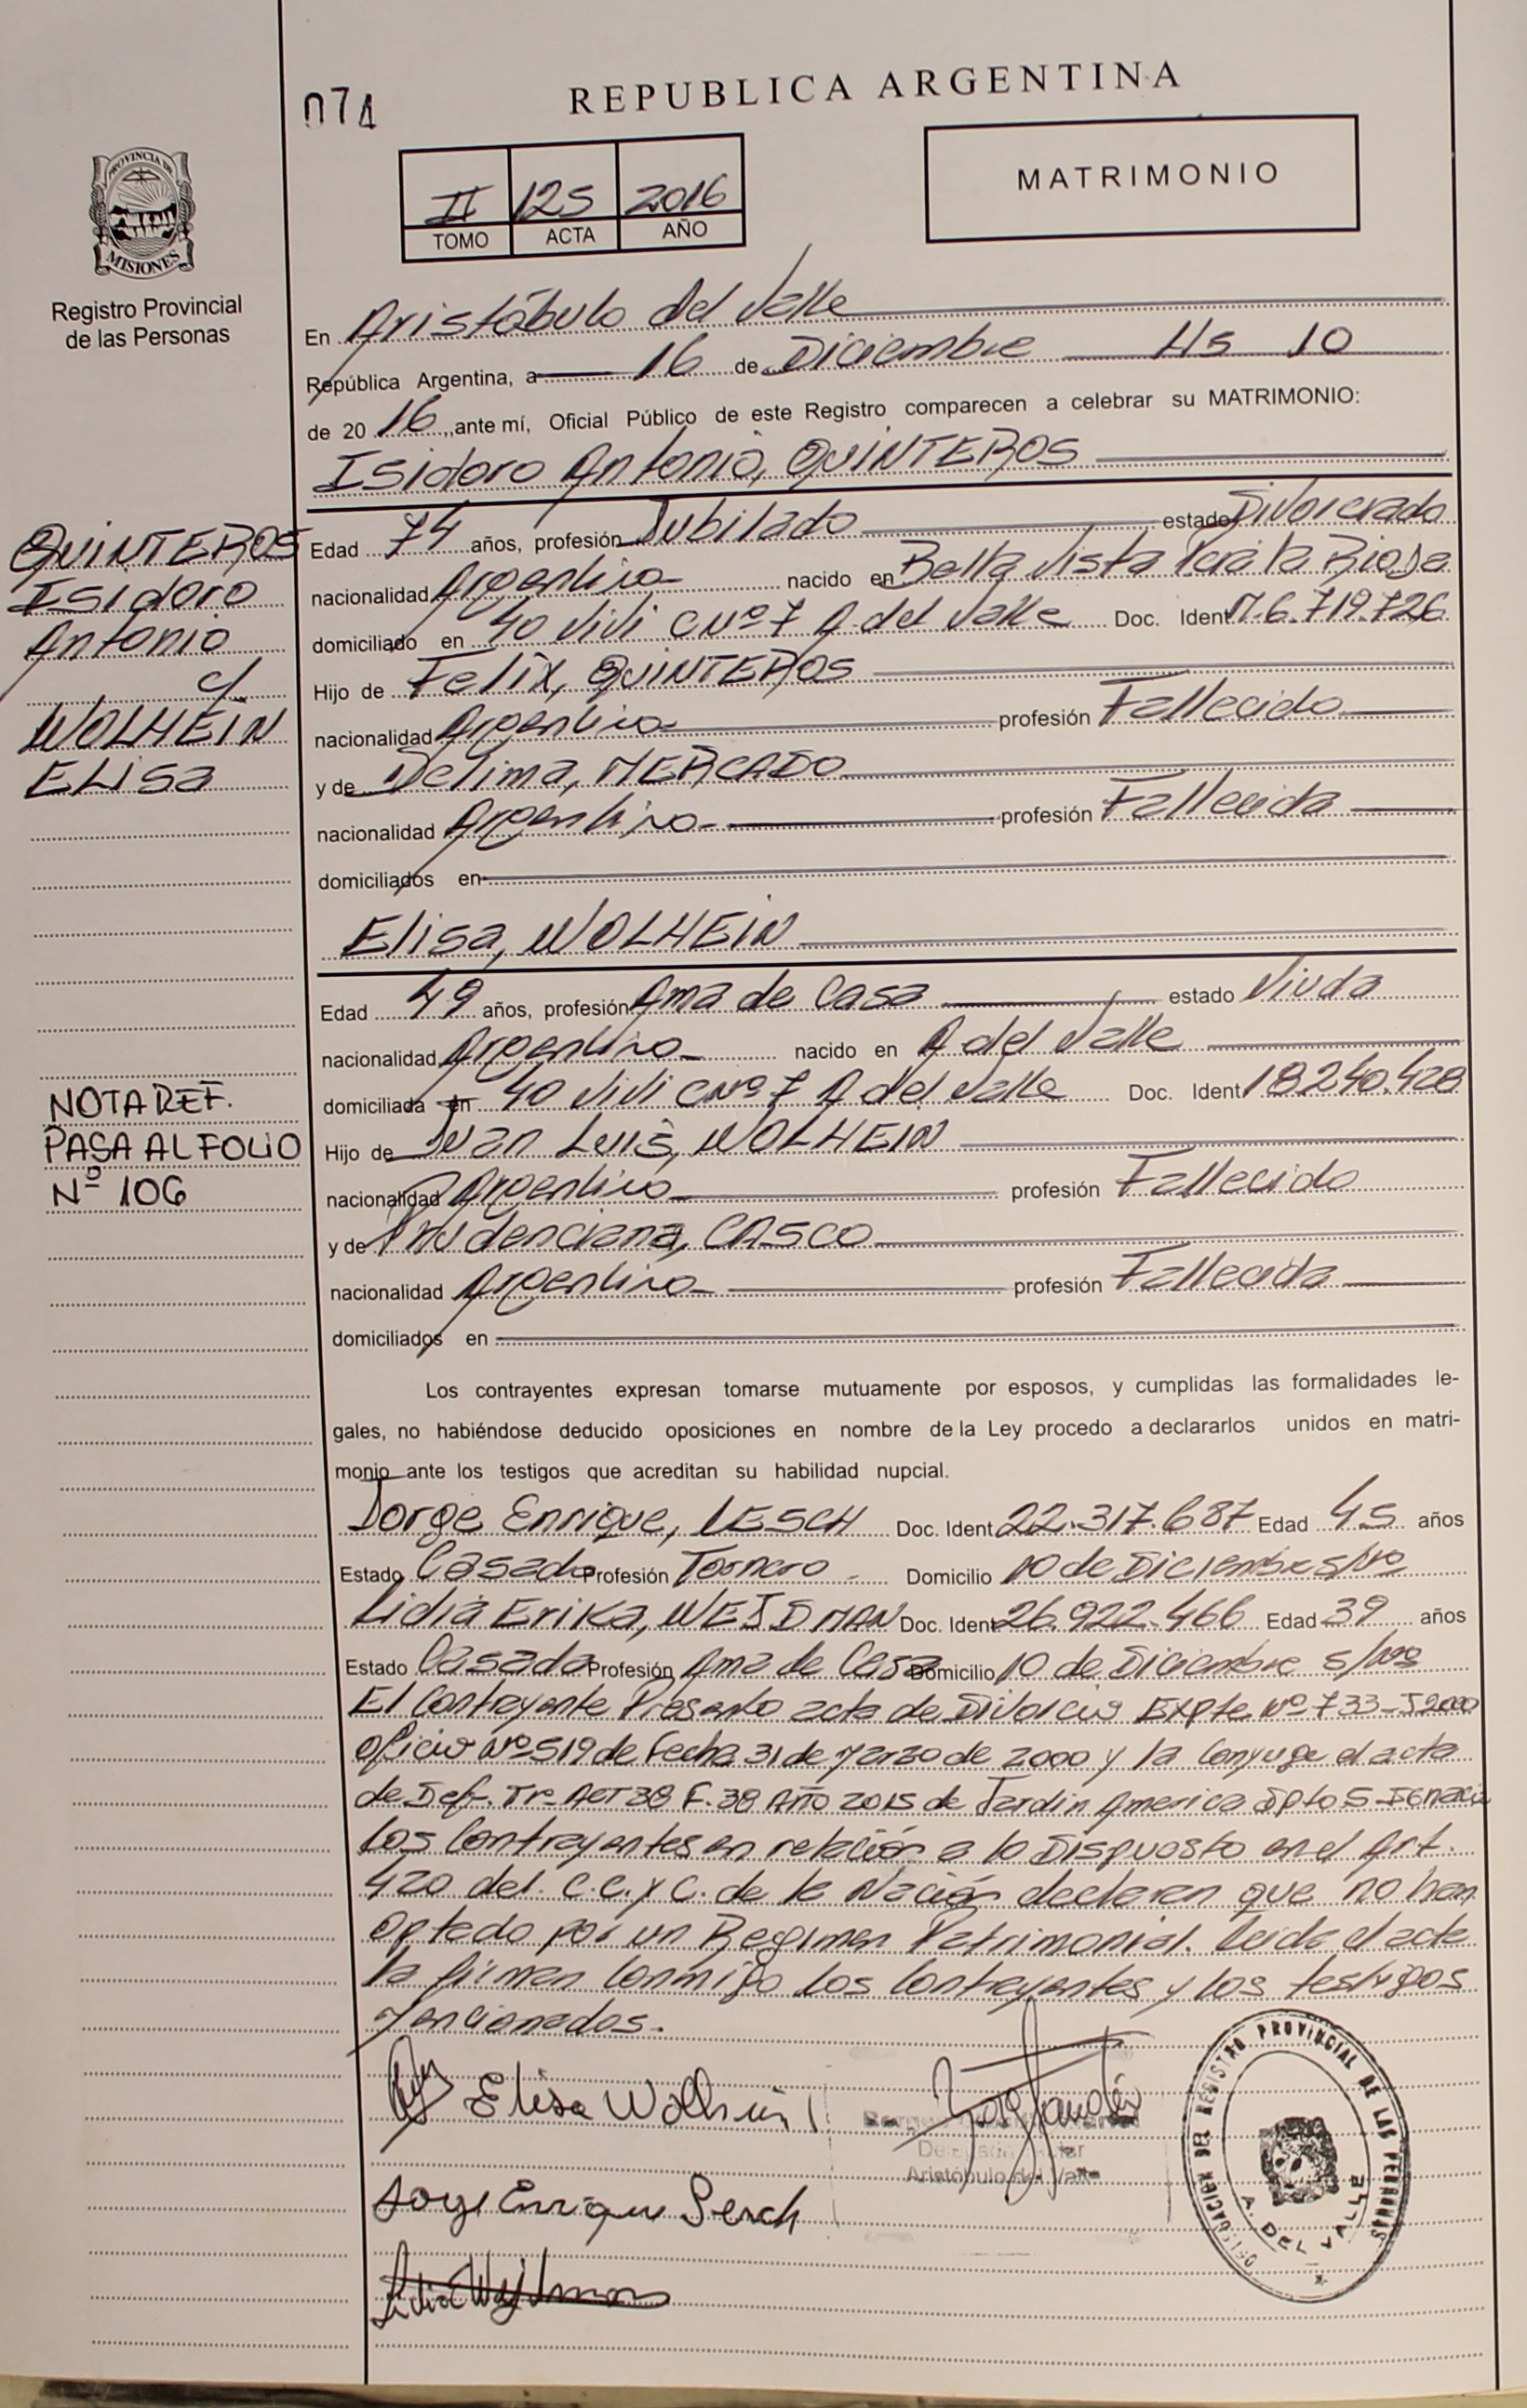 074
REPUBLICA ARGENTINA
II 125 2016
TOMO ACTA AÑO
MATRIMONIO
PROVINCIA DE
MISIONES
Registro Provincial
de las Personas
En Aristóbulo del Valle
República Argentina, a 16 de Diciembre Hs 10
de 20 16 ,,ante mí, Oficial Público de este Registro comparecen a celebrar su MATRIMONIO:
Isidoro Antonio, QUINTEROS
Edad 74 años, profesión Jubilado estado Divorciado
nacionalidad Argentina nacido en Bella Vista Pcia la Rioja
domiciliado en 40 Vivi C Nº 7 A del Valle Doc. Ident M.6.719.726
Hijo de Felix, QUINTEROS
nacionalidad Argentina profesión Fallecido
y de Delima, MERCADO
nacionalidad Argentina profesión Fallecida
domiciliados en
QUINTEROS
Isidoro
Antonio
c/
WOLHEIN
ELISA
Elisa, WOLHEIN
Edad 49 años, profesión Ama de Casa estado Viuda
nacionalidad Argentina nacido en A del Valle
domiciliada en 40 Vivi C Nº 7 A del Valle Doc. Ident 18.240.428
Hijo de Juan Luis, WOLHEIN
nacionalidad Argentino profesión Fallecido
y de Prudenciana, CASCO
nacionalidad Argentina profesión Fallecida
domiciliados en
NOTA REF.
PASA AL FOLIO
Nº 106
Los contrayentes expresan tomarse mutuamente por esposos, y cumplidas las formalidades le-
gales, no habiéndose deducido oposiciones en nombre de la Ley procedo a declararlos unidos en matri-
monio ante los testigos que acreditan su habilidad nupcial.
Jorge Enrique, LESCH Doc. Ident 22.317.687 Edad 45 años
Estado Casado Profesión Tornero Domicilio 10 de Diciembre s/nº
Lidia Erika, WEJDMAN Doc. Ident 26.922.466 Edad 39 años
Estado Casada Profesión Ama de Casa Domicilio 10 de Diciembre s/nº
El Contrayente Presento acta de Divorcio Expte Nº 733-J2000
Oficio Nº 519 de Fecha 31 de Marzo de 2000 y la Conyuge el acta
de Def. Tº- ACT 38 F. 38 Año 2015 de Jardin America Dpto S-Ignacio
Los Contrayentes en relación a lo Dispuesto en el Art.
420 del. C.C. y C. de la Nación declaran que no han
optado por un Regimen Patrimonial. Leida el acta
la firman conmigo los Contrayentes y los testigos
Mencionados.
Elisa Wolhein
Aristóbulo del Valle
Jorge Enrique Lesch
DELEGACION DEL REGISTRO PROVINCIAL DE LAS PERSONAS
A. DEL VALLE